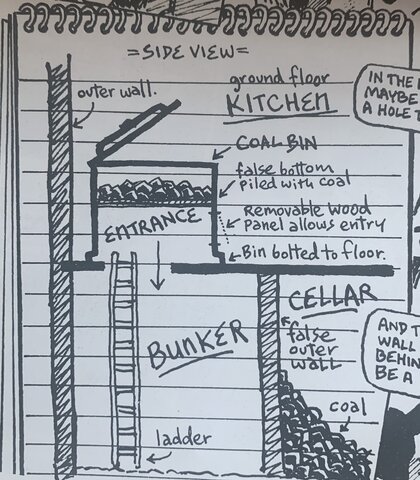 =SIDE VIEW=
outer wall.
ground floor
KITCHEN
IN THE
MAYBE
A HOLE
COAL BIN
false bottom
Piled with coal
ENTRANCE
Removable wood
Panel allows entry
Bin bolted to floor.
CELLAR
BUNKER
false
outer
wall
AND
WALL
BEHIN
BE A
coal
ladder